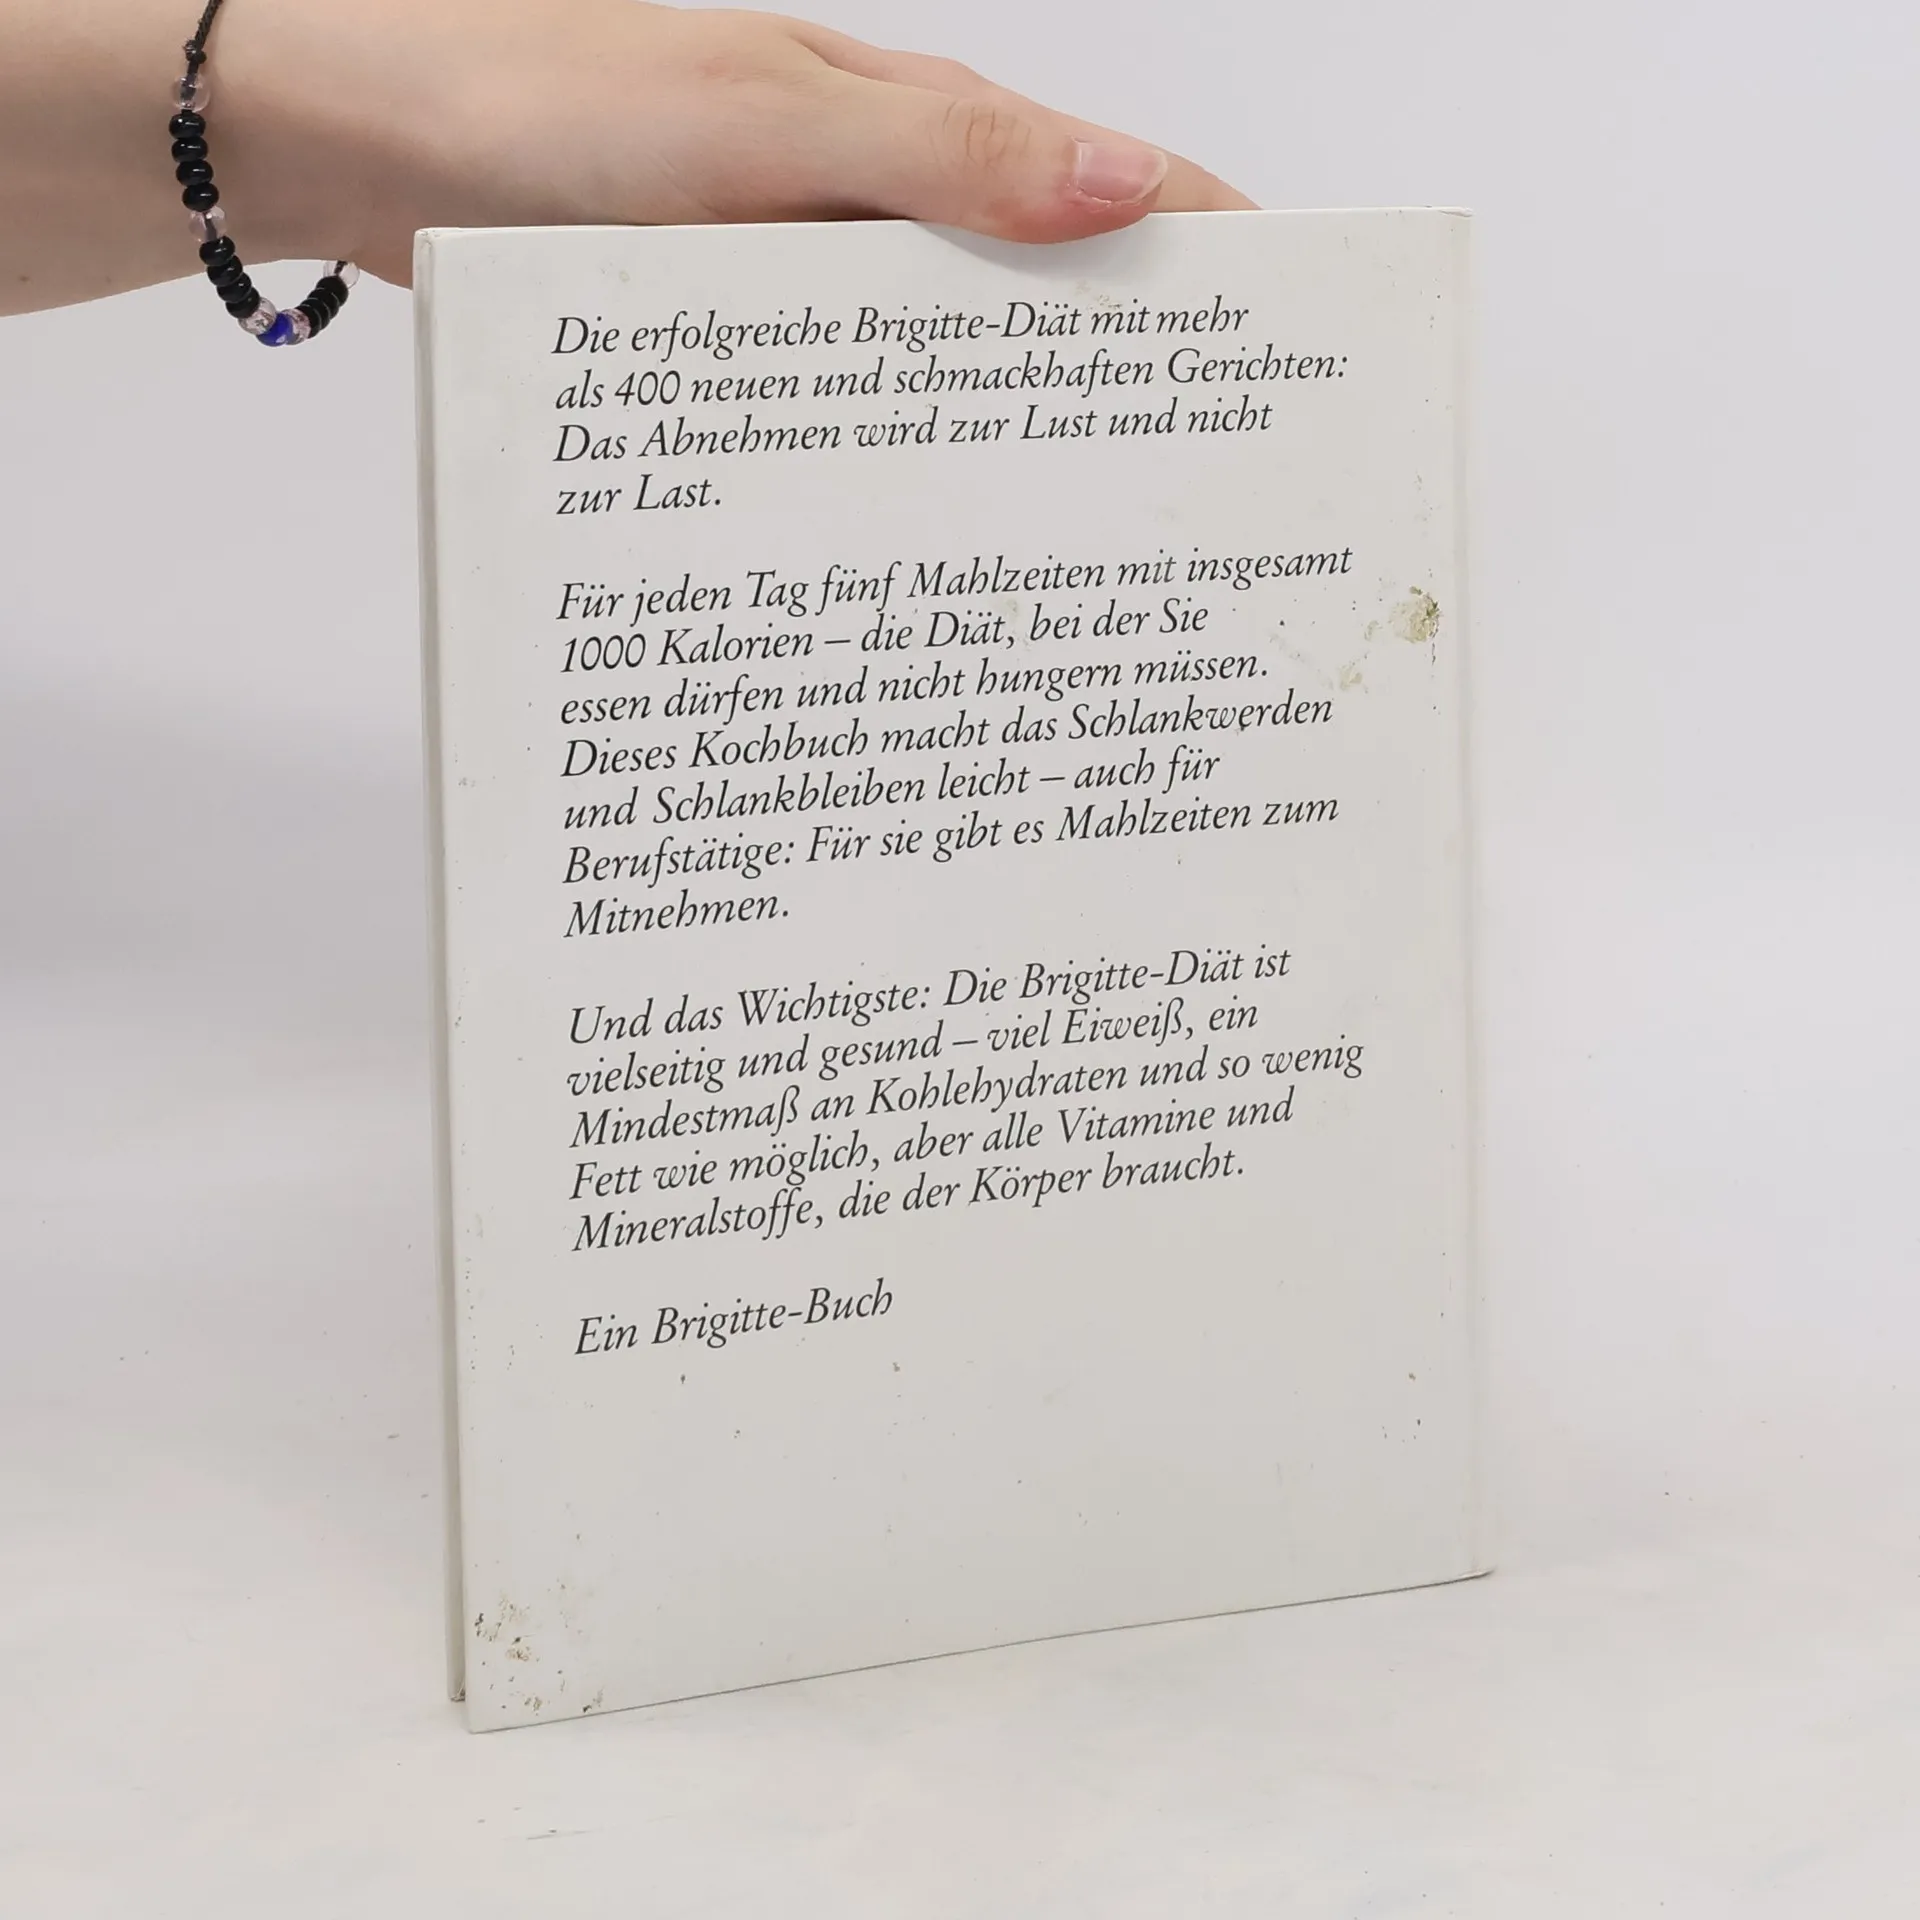 Die erfolgreiche Brigitte-Diät mit mehr
als 400 neuen und schmackhaften Gerichten:
Das Abnehmen wird zur Lust und nicht
zur Last.
Für jeden Tag fünf Mahlzeiten mit insgesamt
1000 Kalorien – die Diät, bei der Sie
essen dürfen und nicht hungern müssen.
Dieses Kochbuch macht das Schlankwerden
und Schlankbleiben leicht – auch für
Berufstätige: Für sie gibt es Mahlzeiten zum
Mitnehmen.
Und das Wichtigste: Die Brigitte-Diät ist
vielseitig und gesund – viel Eiweiß, ein
Mindestmaß an Kohlehydraten und so wenig
Fett wie möglich, aber alle Vitamine und
Mineralstoffe, die der Körper braucht.
Ein Brigitte-Buch